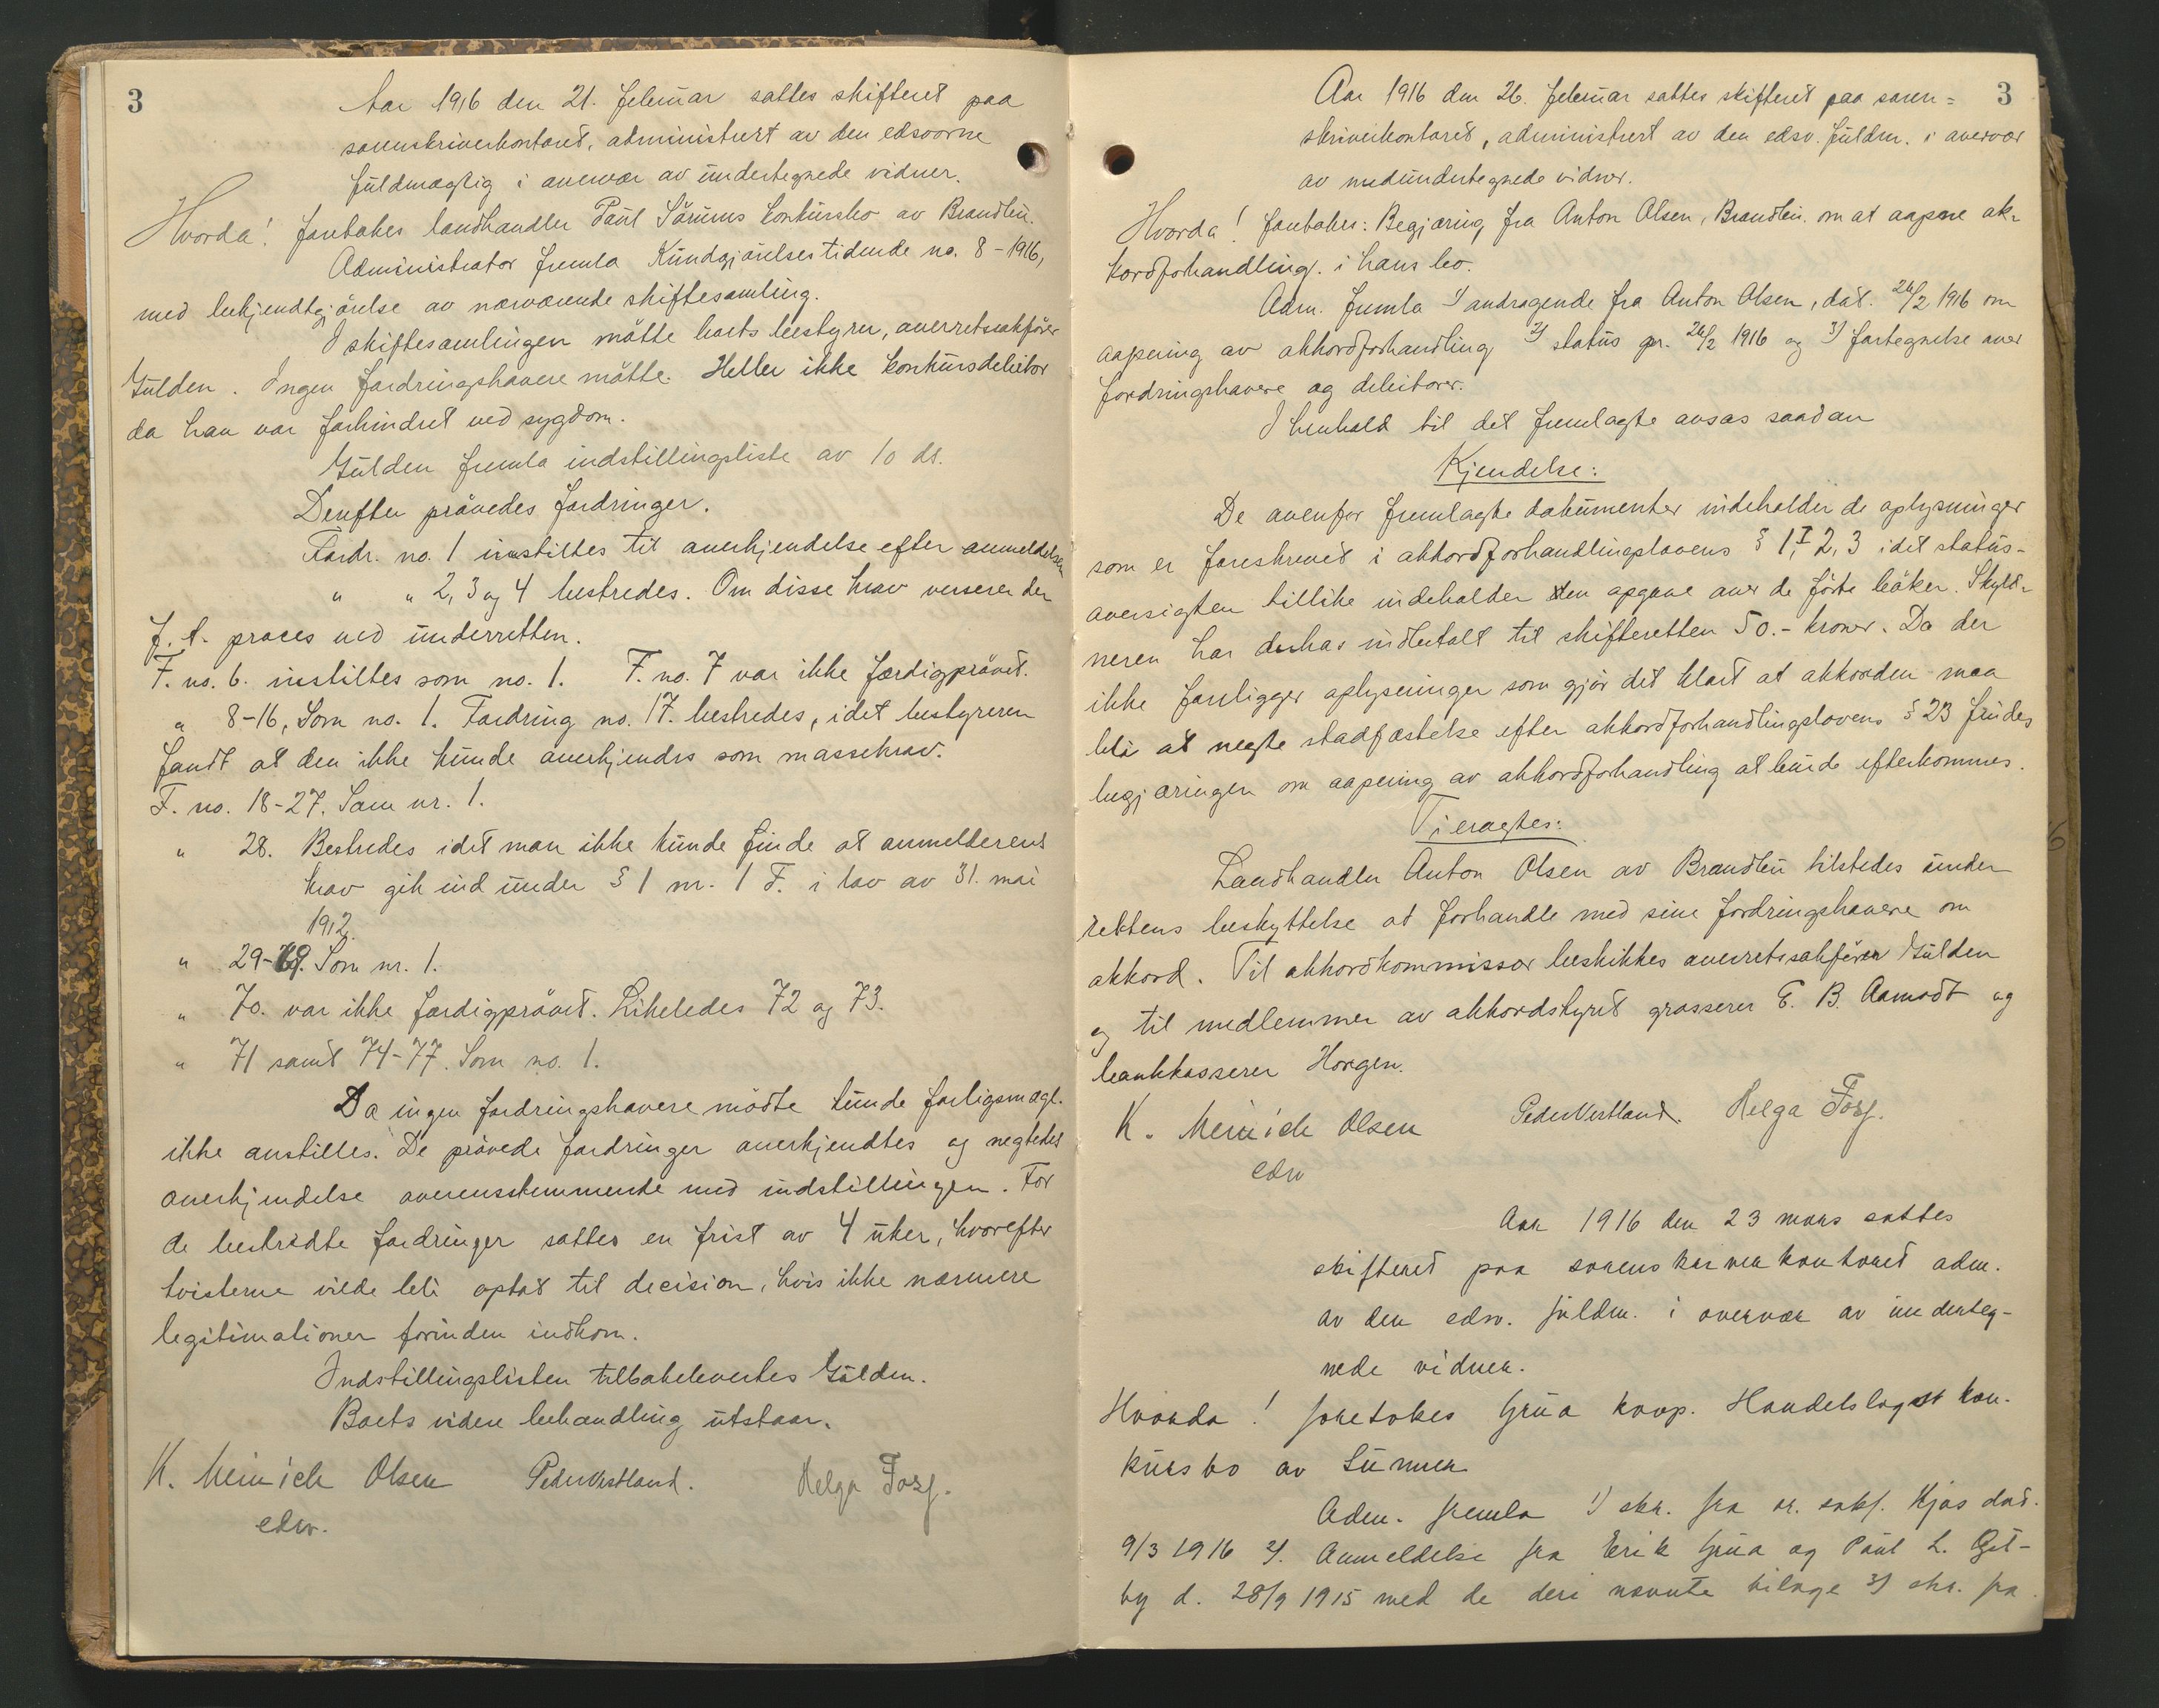 3
Aar 1916 den 21. februar sattes skifteret paa
sorenskriverkontoret, administrert av den edsvorne
fuldmægtig i overvær av undertegnede vidner.
Hvorda! foretokes landhandler Paul Sörums konkursbo av Brandbu.
Administrator fremla Kundgjörelsestidende no. 8 - 1916,
med bekjendtgjörelse av nærværende skiftesamling.
I skiftesamlingen mötte boets bestyrer, overretssakförer
Gulden. Ingen fordringshavere mötte. Heller ikke konkursdebitor
da han var forhindret ved sygdom.
Gulden fremla indstillingsliste av 10 ds.
Derefter prövedes fordringer.
Fordr. no. 1 instilles til anerkjendelse efter anmeldelsen
" " 2, 3 og 4 bestredes. Om disse krav verserer der
f. t. proces ved underretten.
F. no. 6. instilles som no. 1. F. no. 7 var ikke færdigprövet.
" 8-16, Som no. 1. Fordring no. 17. bestredes, idet bestyreren
fandt at den ikke kunde anerkjendes som massekrav.
F. no. 18-27. Som nr. 1.
" 28. Bestredes idet man ikke kunde finde at anmelderens
krav gik ind under § 1 nr. 1 F. i lov av 31. mai
1912.
" 29-69. Som nr. 1.
" 70. var ikke færdigprövet. Likeledes 72 og 73.
" 71 samt 74-77. Som no. 1.
Da ingen fordringshavere mödte kunde forligsmægl.
ikke anstilles. De prövede fordringer anerkjendtes og negtedes
anerkjendelse overensstemmende med indstillingen. For
de bestridte fordringer sattes en frist av 4 uker, hvorefter
tvisterne vilde bli optat til decision, hvis ikke nærmere
legitimationer forinden indkom.
Indstillingslisten tilbakelevertes Gulden.
Boets videre behandling utstaar.
K. Meinich Olsen Peder Vestland. Helga Fosz.
edsv.
3
Aar 1916 den 26. februar sattes skifteret paa soren=
skriverkontoret, administrert av den edsv. fuldm. i overvær
av medundertegnede vidner.
Hvorda! foretokes: Begjæring fra Anton Olsen, Brandbu. om at aapne ak-
kordforhandling. i hans bo.
Adm. fremla 1) andragende fra Anton Olsen, dat. 26/2 1916 om
aapning av akkordforhandling 2) status pr. 26/2 1916 og 3) fortegnelse over
fordringshavere og debitorer.
I henhold til det fremlagte avsas saadan
Kjendelse:
De ovenfor fremlagte dokumenter indeholder de oplysninger
som er foreskrevet i akkordforhandlingslovens § 1, I 2, 3 idet status-
oversigten tillike indeholder den opgave over de förte böker. Skyld-
neren har derhos indbetalt til skifteretten 50.- kroner. Da der
ikke foreligger oplysninger som gjör det klart at akkorden maa
bli at negte stadfæstelse efter akkordforhandlingslovens § 23 findes
begjæringen om aapning av akkordforhandling at burde efterkommes.
Ti eragtes:
Landhandler Anton Olsen av Brandbu tilstedes under
rettens beskyttelse at forhandle med sine fordringshavere om
akkord. Til akkordkommissær beskikkes overretssakförer Gulden
og til medlemmer av akkordstyret grosserer E. B. Aamodt og
bankkasserer Horgen.
K. Meinich Olsen Peder Vestland. Helga Fosz.
edsv
Aar 1916 den 23 mars sattes
skifteret paa sorenskriverkontoret adm.
av den edsv. fuldm. i overvær av underteg-
nede vidner.
Hvorda! foretokes Grua koop. Handelslagst kon-
kursbo av Lunner
Adm. fremla 1) skr. fra or. sakf. Kjos dat.
9/3 1916 2). Anmeldelse fra Erik Grua og Paul L. Gut-
by d. 28/9 1915 med de deri nævnte bilage 3) skr. fra